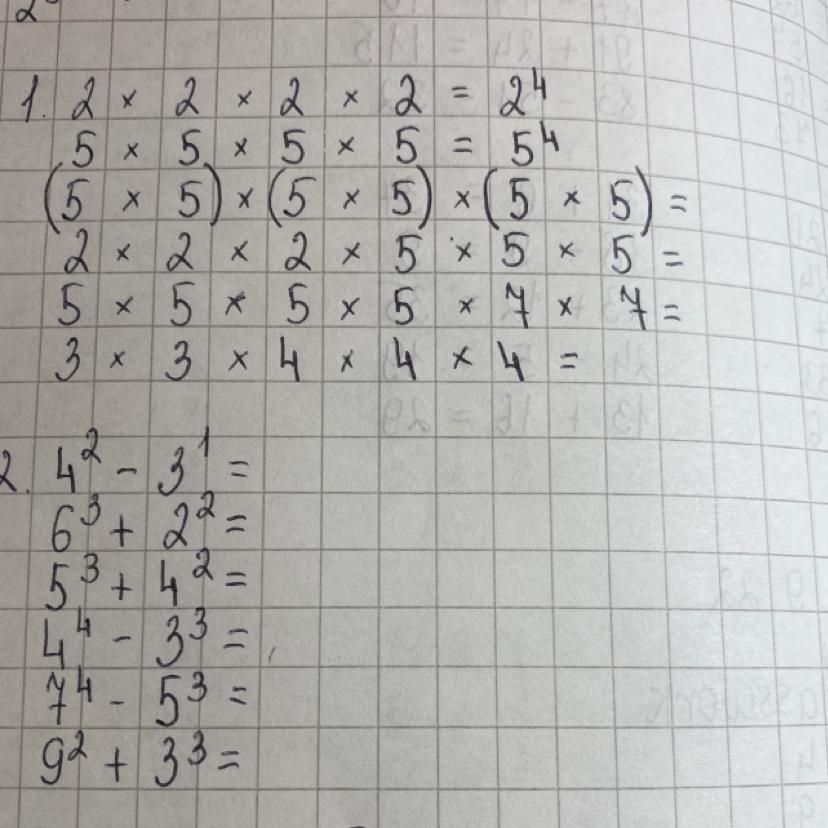 1. 2 × 2 × 2 × 2 = 2⁴
5 × 5 × 5 × 5 = 5⁴
(5 × 5) × (5 × 5) × (5 × 5) =
2 × 2 × 2 × 5 × 5 × 5 =
5 × 5 × 5 × 5 × 7 × 7 =
3 × 3 × 4 × 4 × 4 =
2. 4² - 3¹ =
6³ + 2² =
5³ + 4² =
4⁴ - 3³ =
7⁴ - 5³ =
9² + 3³ =